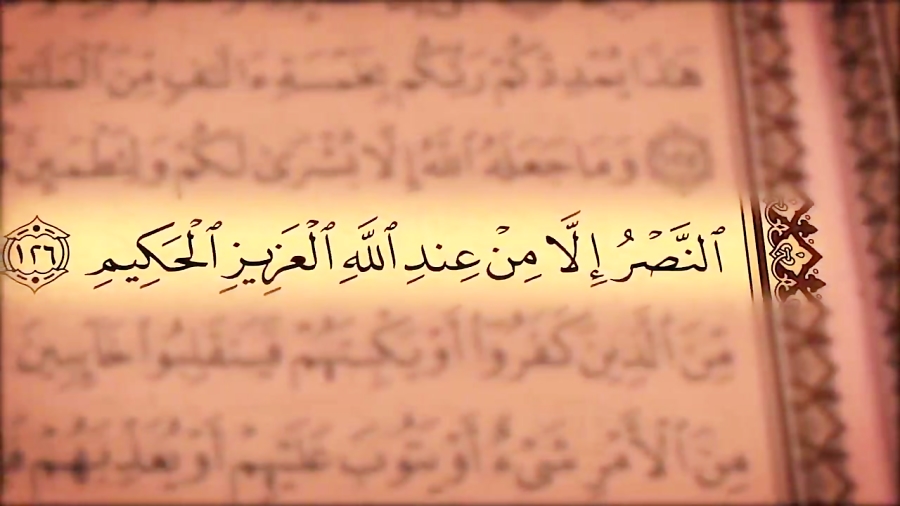 هَٰذَا يُمْدِدْكُمْ رَبُّكُم بِخَمْسَةِ ءَالَٰفٍ مِّنَ
١٢٥ وَمَا جَعَلَهُ ٱللَّهُ إِلَّا بُشْرَىٰ لَكُمْ وَلِتَطْمَئِنَّ
ٱلنَّصْرُ إِلَّا مِنْ عِندِ ٱللَّهِ ٱلْعَزِيزِ ٱلْحَكِيمِ ١٢٦
مِّنَ ٱلَّذِينَ كَفَرُوٓا۟ أَوْ يَكْبِتَهُمْ فَيَنقَلِبُوا۟ خَآئِبِينَ
مِنَ ٱلْأَمْرِ شَىْءٌ أَوْ يَتُوبَ عَلَيْهِمْ أَوْ يُعَذِّبَهُمْ